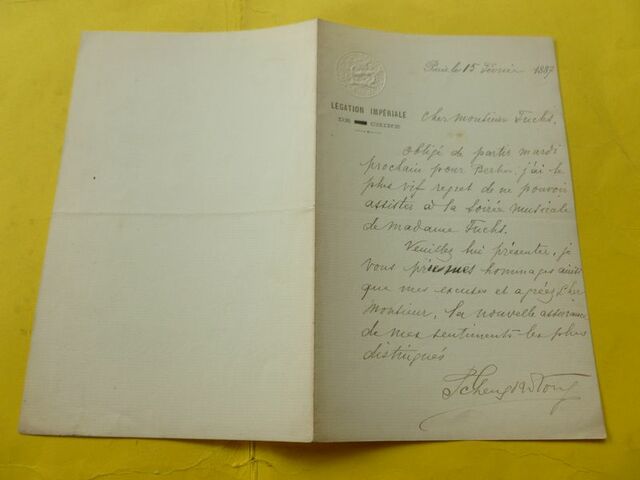 Paris le 15 Février 1887
LEGATION IMPÉRIALE
DE CHINE
Cher Monsieur Fuchs.
Obligé de partir mardi
prochain pour Berlin, j'ai le
plus vif regret de ne pouvoir
assister à la soirée musicale
de Madame Fuchs.
Veuillez lui présenter, je
vous prie, mes hommages ainsi
que mes excuses et agréez, Cher
Monsieur, la nouvelle assurance
de mes sentiments les plus
distingués
Tcheng Ki Tong